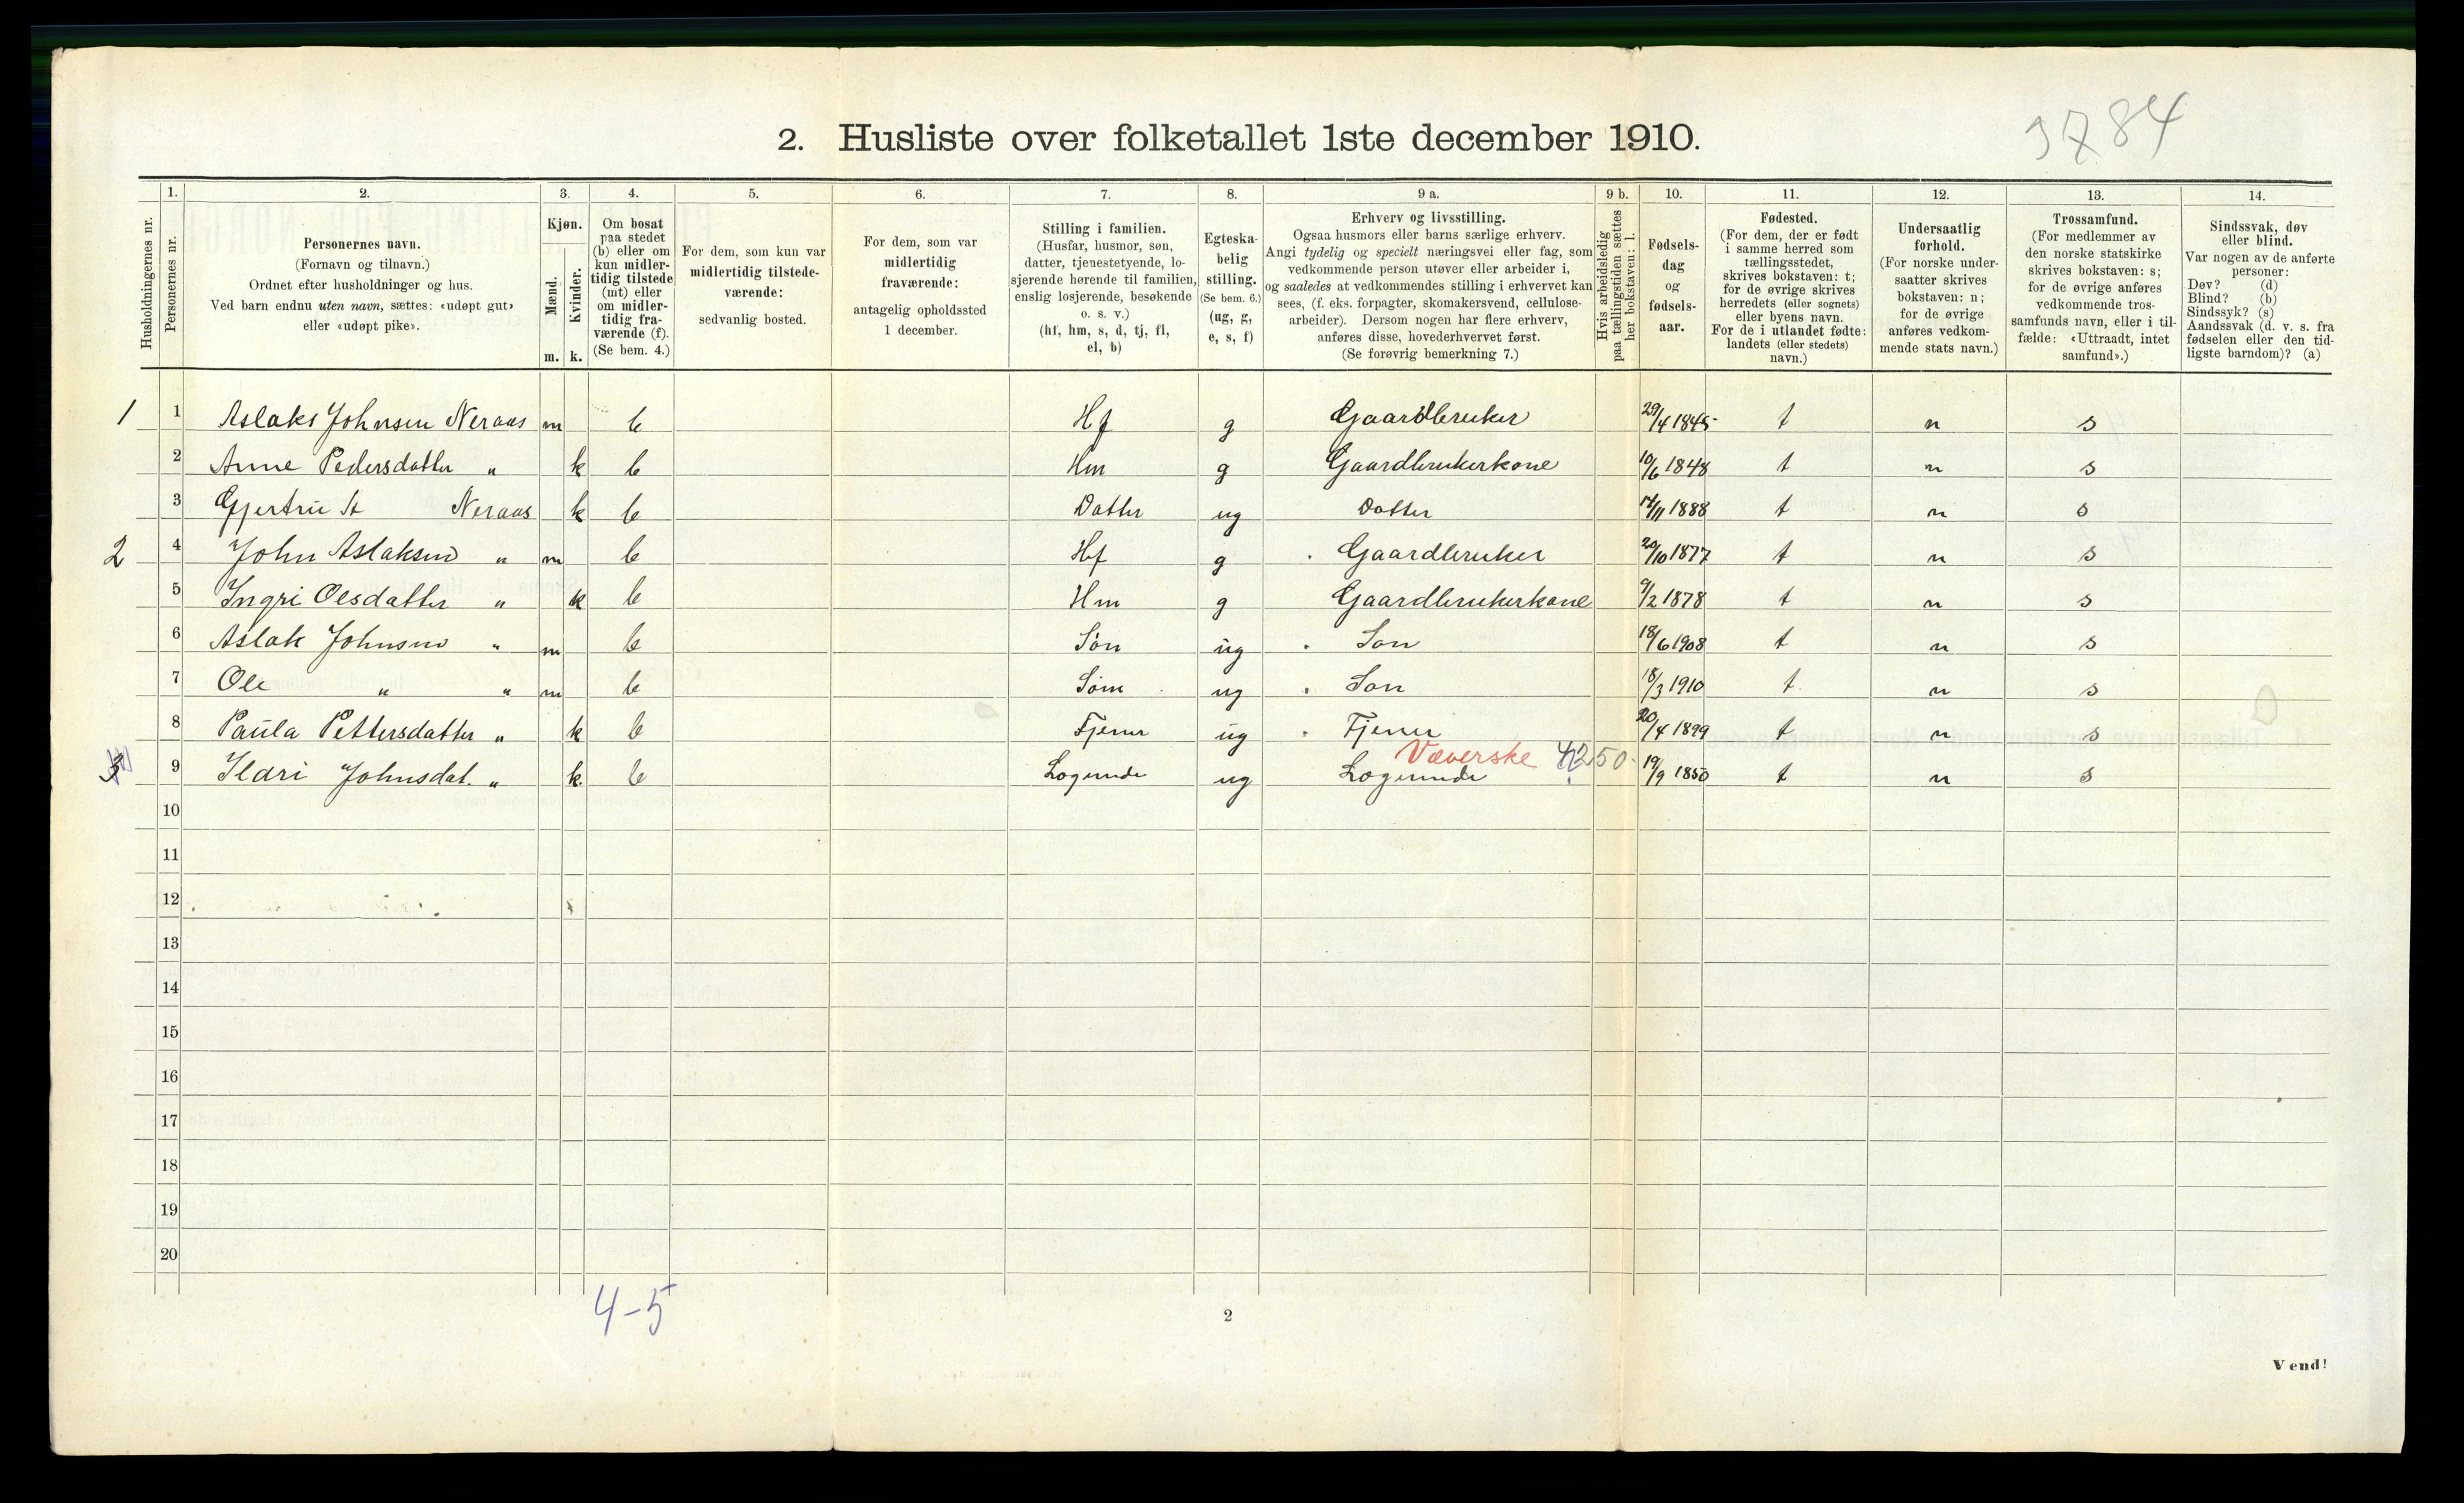 3784
2. Husliste over folketallet 1ste december 1910.
1. 2. 3. 4. 5. 6. 7. 8. 9 a. 9 b. 10. 11. 12. 13. 14.
Husholdningernes nr.
Personernes nr.
Personernes navn.
(Fornavn og tilnavn.)
Ordnet efter husholdninger og hus.
Ved barn endnu uten navn, sættes: «udøpt gut»
eller «udøpt pike».
Kjøn.
Mænd.
Kvinder.
m. k.
Om bosat
paa stedet
(b) eller om
kun midler-
tidig tilstede
(mt) eller
om midler-
tidig fra-
værende (f).
(Se bem. 4.)
For dem, som kun var
midlertidig tilstede-
værende:
sedvanlig bosted.
For dem, som var
midlertidig
fraværende:
antagelig opholdssted
1 december.
Stilling i familien.
(Husfar, husmor, søn,
datter, tjenestetyende, lo-
sjerende hørende til familien,
enslig losjerende, besøkende
o. s. v.)
(hf, hm, s, d, tj, fl,
el, b)
Egteska-
belig
stilling.
(Se bem. 6.)
(ug, g,
e, s, f)
Erhverv og livsstilling.
Ogsaa husmors eller barns særlige erhverv.
Angi tydelig og specielt næringsvei eller fag, som
vedkommende person utøver eller arbeider i,
og saaledes at vedkommendes stilling i erhvervet kan
sees, (f. eks. forpagter, skomakersvend, cellulose-
arbeider). Dersom nogen har flere erhverv,
anføres disse, hovederhvervet først.
(Se forøvrig bemerkning 7.)
Hvis arbeidsledig
paa tællingstiden sættes
her bokstaven: l.
Fødsels-
dag
og
fødsels-
aar.
Fødested.
(For dem, der er født
i samme herred som
tællingsstedet,
skrives bokstaven: t;
for de øvrige skrives
herredets (eller sognets)
eller byens navn.
For de i utlandet fødte:
landets (eller stedets)
navn.)
Undersaatlig
forhold.
(For norske under-
saatter skrives
bokstaven: n;
for de øvrige
anføres vedkom-
mende stats navn.)
Trossamfund.
(For medlemmer av
den norske statskirke
skrives bokstaven: s;
for de øvrige anføres
vedkommende tros-
samfunds navn, eller i til-
fælde: «Uttraadt, intet
samfund».)
Sindssvak, døv
eller blind.
Var nogen av de anførte
personer:
Døv? (d)
Blind? (b)
Sindssyk? (s)
Aandssvak (d. v. s. fra
fødselen eller den tid-
ligste barndom)? (a)
1 1 Aslaks Johnsen Neraas m b Hf g Gaardbruker 29/4 1845 t n s
2 Anne Pedersdatter " k b Hm g Gaardbrukerkone 10/6 1848 t n s
3 Gjertru A Neraas k b Datter ug Datter 14/11 1888 t n s
2 4 John Aslaksen " m b Hf g Gaardbruker 20/10 1877 t n s
5 Ingri Olsdatter " k b Hm g Gaardbrukerkone 9/2 1878 t n s
6 Aslak Johnsen " m b Søn ug Søn 18/6 1908 t n s
7 Ole " " m b Søn ug Søn 18/3 1910 t n s
8 Paula Pettersdatter " k b Tjener ug Tjener 20/4 1899 t n s
Væverske 4250
3 9 Ildri Johnsdat. " k. b Logerende ug Logerende 19/9 1850 t n s
10
11
12
13
14
15
16
17
18
19
20
4-5
2
Vend!